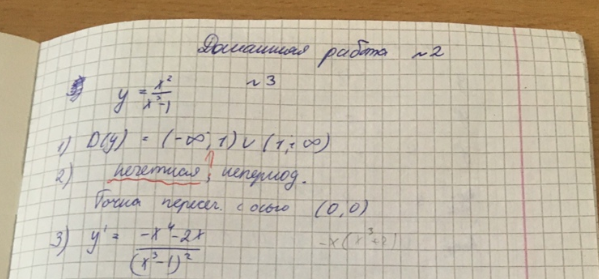 Домашняя работа №2
№3
y = x²/(x³-1)
1) D(y) = (-∞; 1) ∪ (1; +∞)
2) нечетная, непериод.
Точка пересеч. с осью (0,0)
3) y' = (-x⁴-2x)/(x³-1)² -x(x³+2)